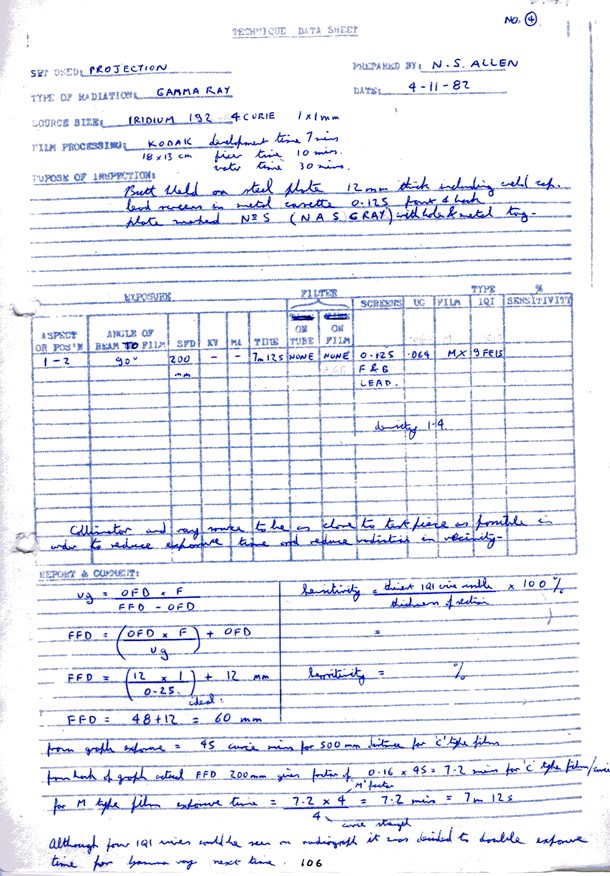 NO. 4
TECHNIQUE DATA SHEET
SET USED: PROJECTION
PREPARED BY: N.S. ALLEN
TYPE OF RADIATION: GAMMA RAY
DATE: 4-11-82
SOURCE SIZE: IRIDIUM 192 4 CURIE 1 x 1mm
FILM PROCESSING: KODAK development time 7 mins
18 x 13 cm fixer time 10 mins.
water time 30 mins.
PUPOSE OF INSPECTION:
Butt Weld on steel plate 12mm thick including weld cap.
lead screens in metal cassette 0.125 front & back
plate marked No 5 (N A S GRAY) with hole & metal tag.
EXPOSURE FILTER TYPE %
ASPECT OR POS'N ANGLE OF BEAM TO FILM SFD KV MA TIME ON TUBE ON FILM SCREENS UG FILM IQI SENSITIVITY
1-2 90° 200 - - 7m 12s NONE NONE 0.125 .064 MX 9FE15
mm F & B
LEAD.
density 1.4
Collimator and ray source to be as close to test piece as possible in
order to reduce exposure time and reduce radiation in vicinity.
REPORT & COMMENT:
ug = OFD x F / FFD - OFD
Sensitivity = thinnest IQI wire visible / thickness of section x 100%
FFD = (OFD x F / ug) + OFD
=
FFD = (12 x 1 / 0.25) + 12 mm
Sensitivity = %
ideal:
FFD = 48+12 = 60 mm
from graph exposure = 45 curie mins for 500mm distance for 'C' type film
from back of graph actual FFD 200mm gives factor of 0.16 x 45 = 7.2 mins for 'C' type film/curie
for M type film exposure time = 7.2 x 4 / 4 = 7.2 mins = 7m 12s
'M' factor
curie strength
Although four IQI wires could be seen on radiograph it was decided to double exposure
time for Gamma ray next time. 106